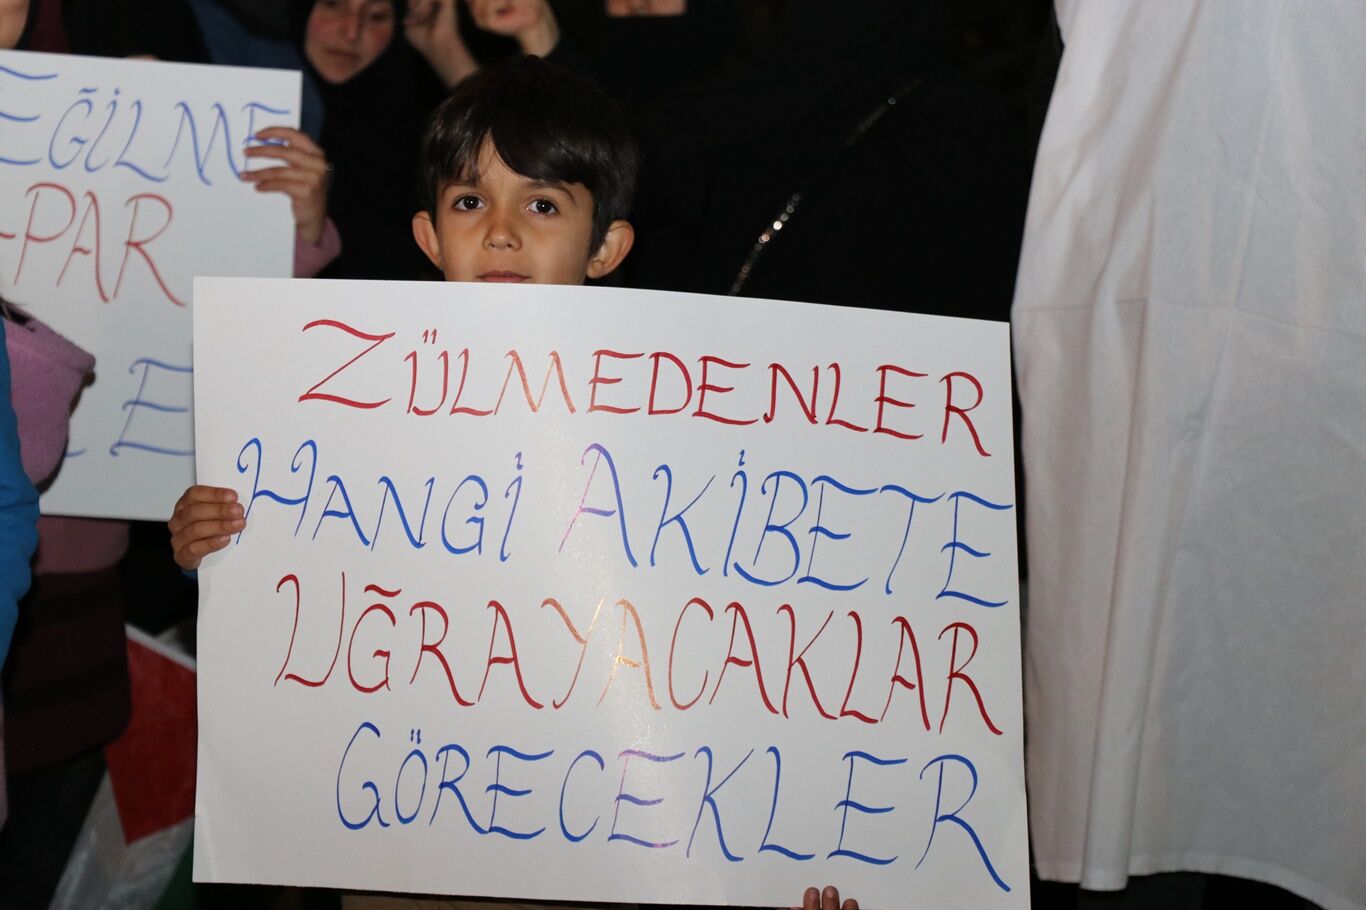 EĞİLME
-PAR
E
ZÜLMEDENLER
HANGİ AKİBETE
UĞRAYACAKLAR
GÖRECEKLER